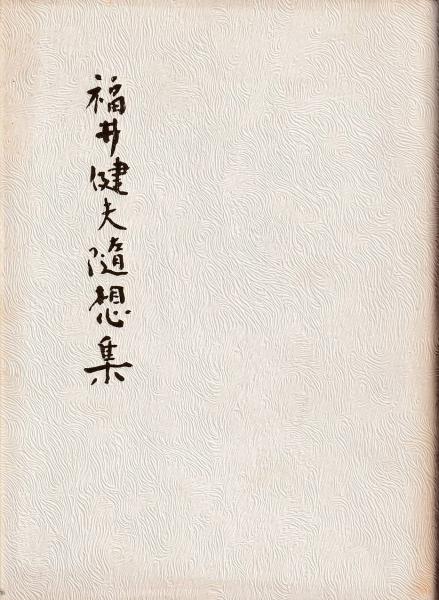 福井健夫隨想集